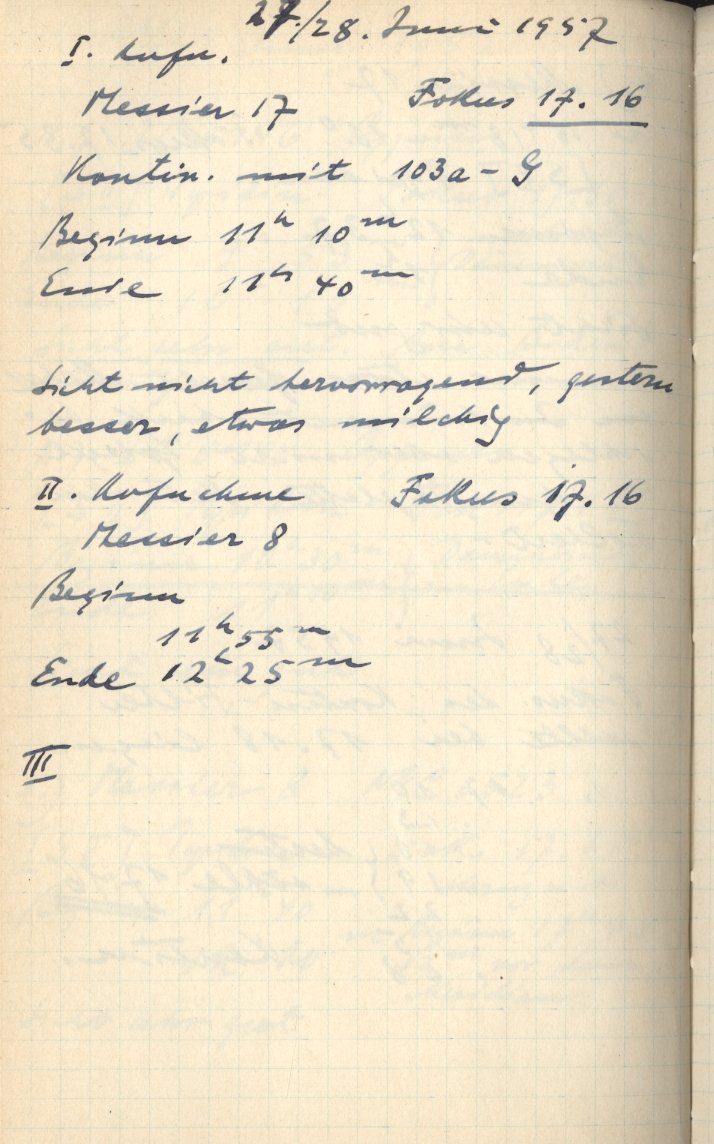 27./28. Juni 1957
I. Aufn.
Messier 17 Fokus 17.16
Kontin. mit 103a-G
Beginn 11h 10m
Ende 11h 40m
Sicht nicht hervorragend, gestern
besser, etwas milchig
II. Aufnahme Fokus 17.16
Messier 8
Beginn
11h 55m
Ende 12h 25m
III